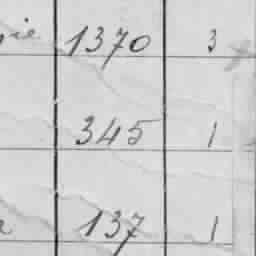 1370 3
345 1
137 1